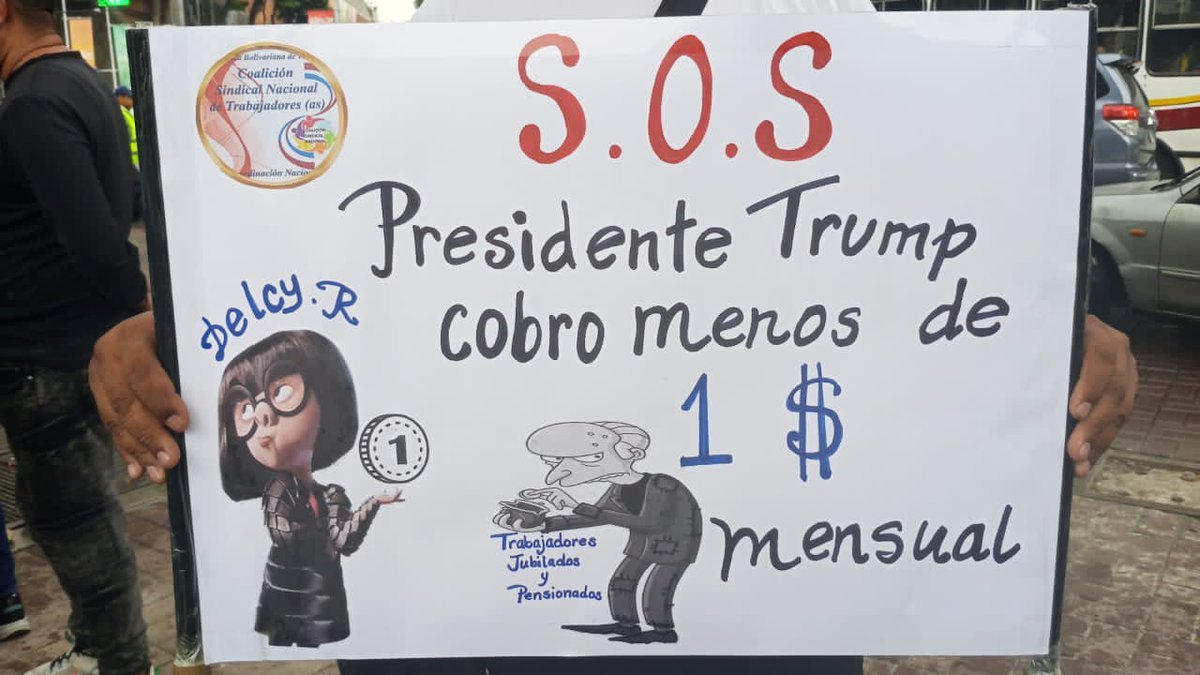 a Bolivariana de
Coalición
Sindical Nacional
de Trabajadores (as)
COALICIÓN
SINDICAL
NACIONAL
rdinación Nacio
S.O.S
Presidente Trump
cobro menos de
1 $
mensual
Delcy. R
1
Trabajadores
Jubilados
y
Pensionados